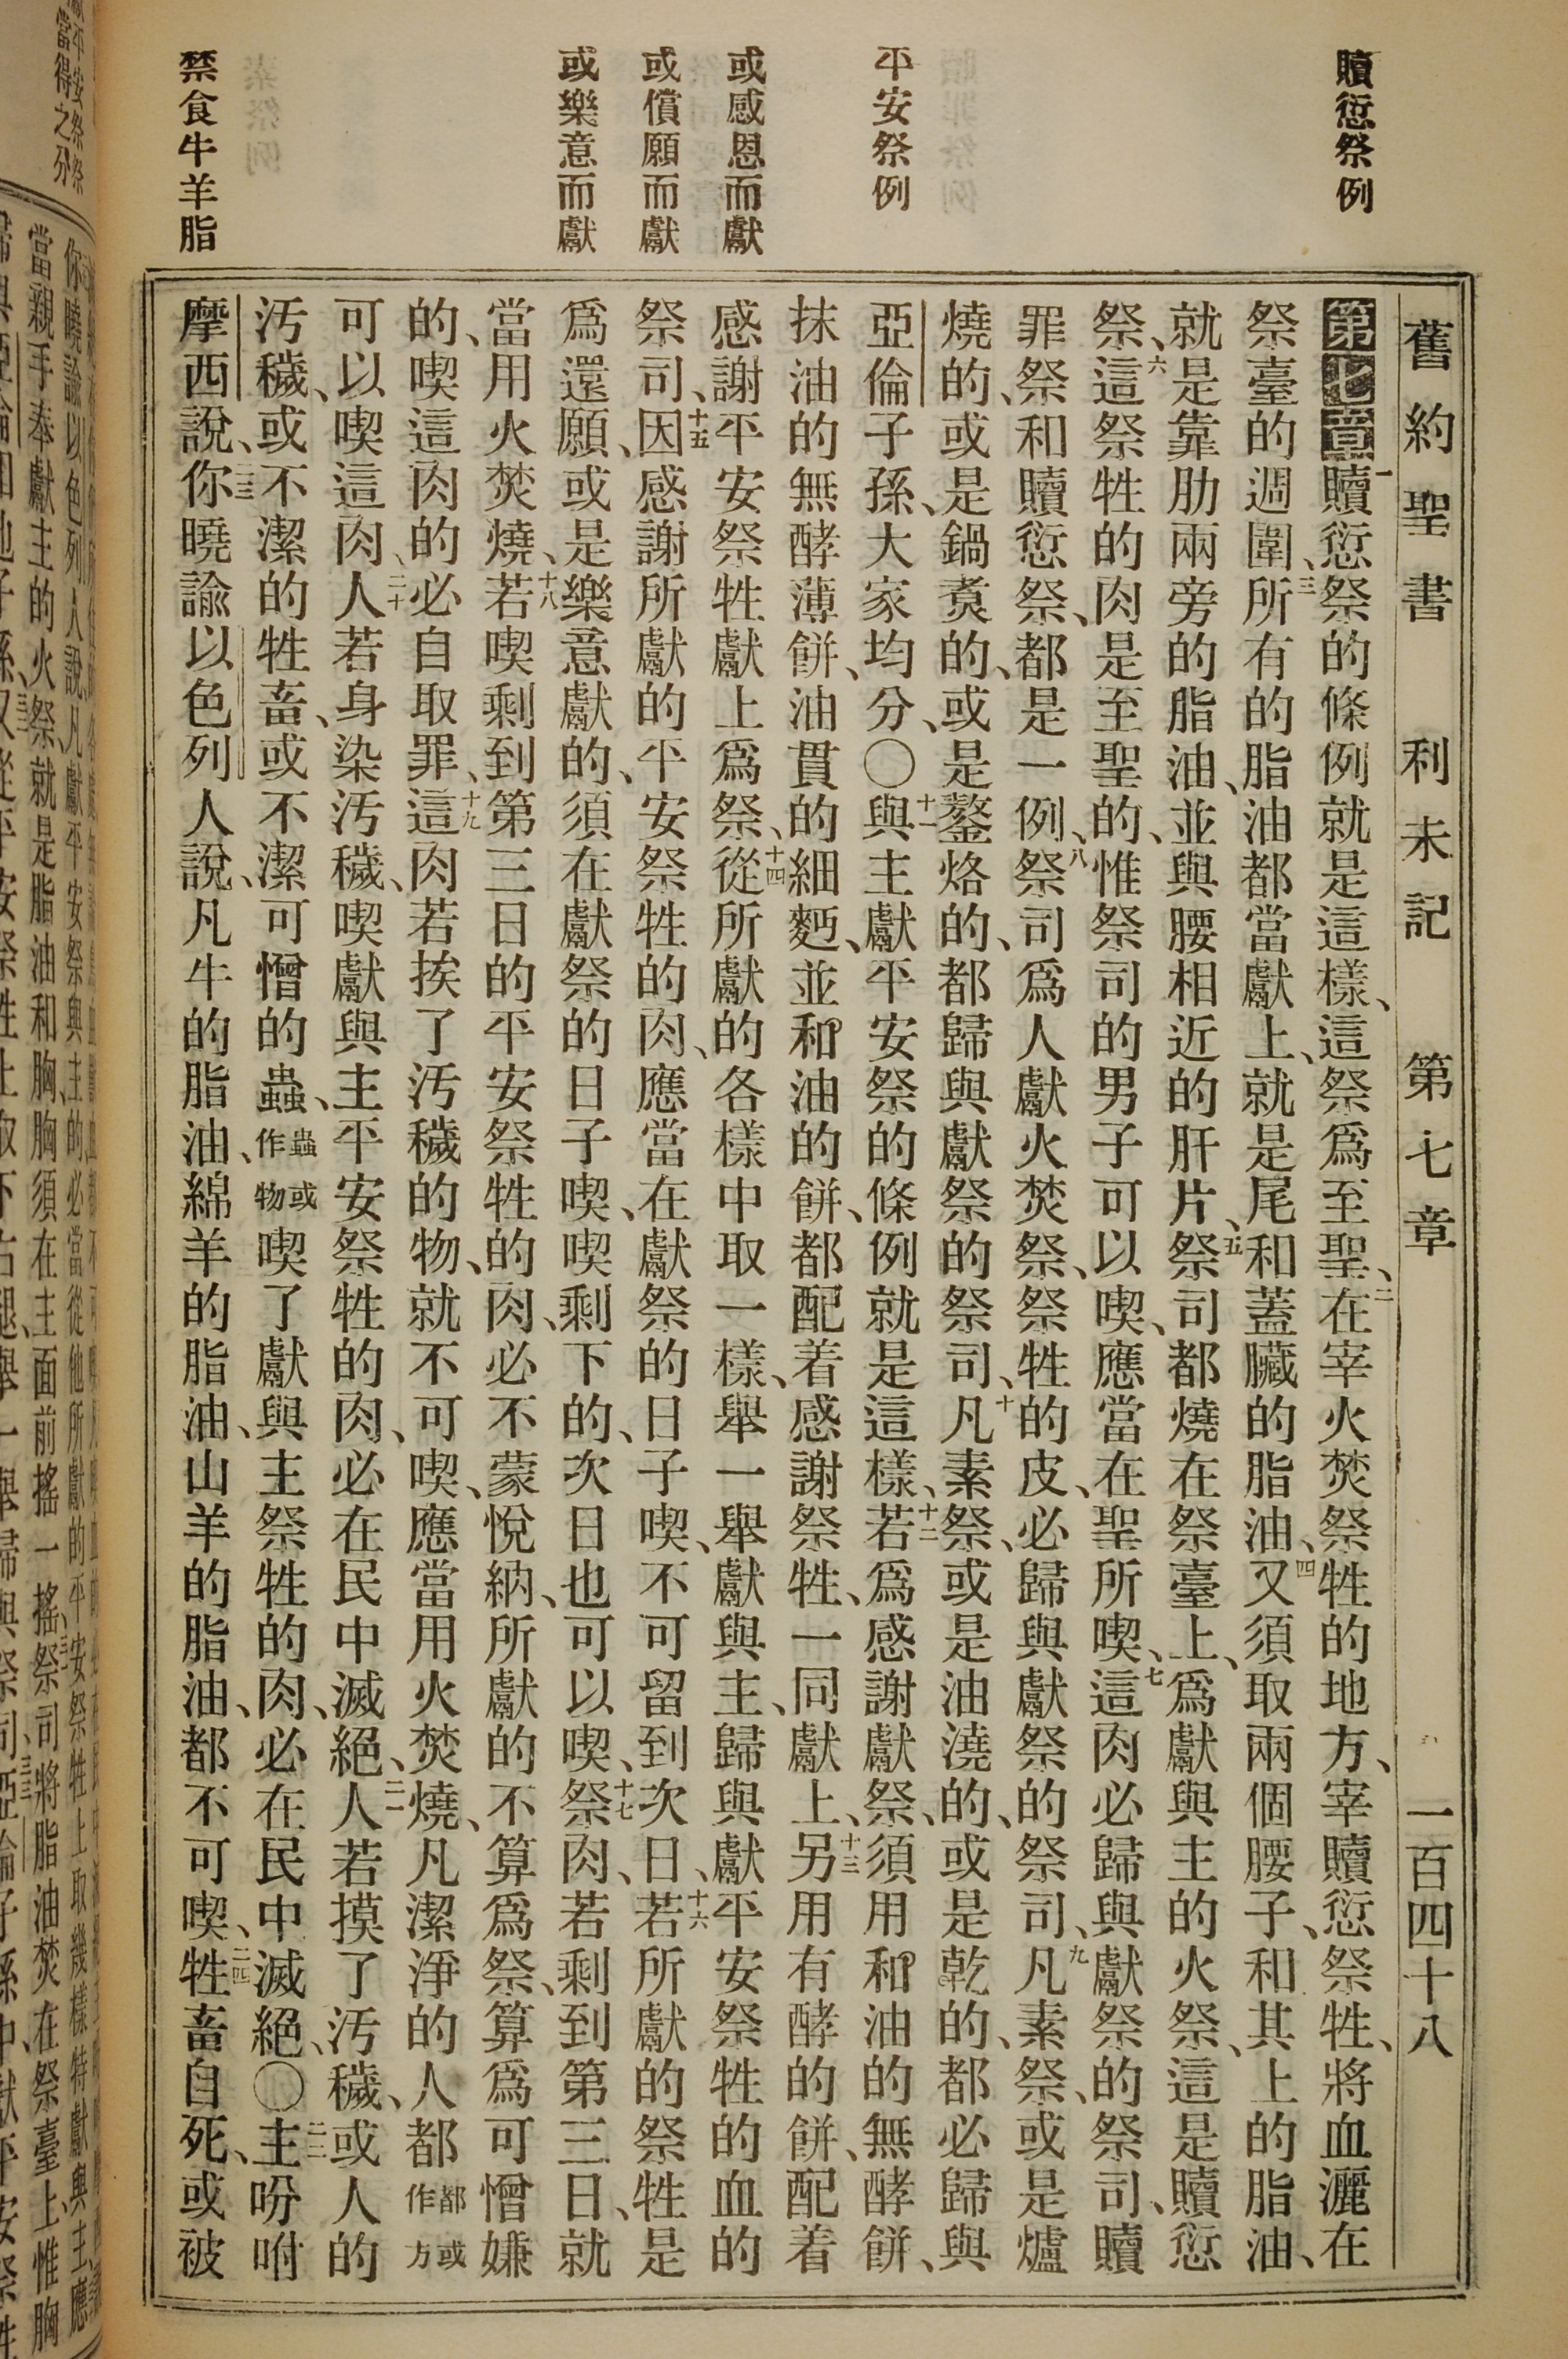 舊約聖書 利未記 第七章 一百四十八
贖愆祭例
平安祭例
或感恩而獻
或償願而獻
或樂意而獻
禁食牛羊脂
第七章 一贖愆祭的條例就是這樣、這祭爲至聖、二在宰火焚祭牲的地方、宰贖愆祭牲、將血灑在
祭臺的週圍、三所有的脂油都當獻上、就是尾和蓋臟的脂油、四又須取兩個腰子、和其上的脂油、
就是靠肋兩旁的脂油、並與腰相近的肝片、五祭司都燒在祭臺上、爲獻與主的火祭、這是贖愆
祭、六這祭牲的肉是至聖的、惟祭司的男子可以喫、應當在聖所喫、七這肉必歸與獻祭的祭司、贖
罪祭和贖愆祭、都是一例、八祭司爲人獻火焚祭、祭牲的皮、必歸與獻祭的祭司、九凡素祭、或是爐
燒的、或是鍋煑的、或是鏊烙的、都歸與獻祭的祭司、十凡素祭、或是油澆的、或是乾的、都必歸與
亞倫子孫、大家均分、〇十一與主獻平安祭的條例就是這樣、十二若爲感謝獻祭、須用和油的無酵餅、
抹油的無酵薄餅、油貫的細麪、並和油的餅、都配着感謝祭牲、一同獻上、十三另用有酵的餅、配着
感謝平安祭牲獻上爲祭、十四從所獻的各樣中取一樣、舉一舉獻與主、歸與獻平安祭牲的血的
祭司、十五因感謝所獻的平安祭牲的肉、應當在獻祭的日子喫、不可留到次日、十六若所獻的祭牲是
爲還願、或是樂意獻的、須在獻祭的日子喫、喫剩下的、次日也可以喫、十七祭肉、若剩到第三日、就
當用火焚燒、十八若喫剩到第三日的平安祭牲的肉、必不蒙悅納、所獻的不算爲祭、算爲可憎嫌
的、喫這肉的必自取罪、十九這肉若挨了汚穢的物、就不可喫、應當用火焚燒、凡潔淨的人都都或作方
可以喫這肉、二十人若身染汚穢、喫獻與主平安祭牲的肉、必在民中滅絕、二一人若摸了汚穢、或人的
汚穢、或不潔的牲畜、或不潔可憎的蟲、蟲或作物喫了獻與主祭牲的肉、必在民中滅絕、〇二二主吩咐
摩西說、二三你曉諭以色列人說、凡牛的脂油、綿羊的脂油、山羊的脂油、都不可喫、二四牲畜自死、或被